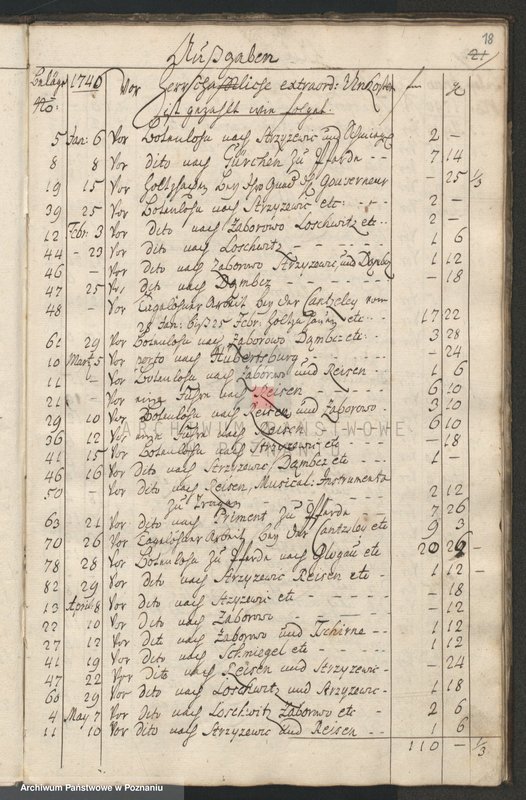 18
21
Außgaben
Beläge No: 1746 Vor Herrschafftliche extraord: Unkosten
ist gezahlt wie folget.
5 Jan: 6 Vor Botenlohn nach Strzyzewic und 2 –
8 8 Vor dito nach Gürchen zu Pferde 7 14
19 15 Vor bey Ihro Gnad H Gouverneur – 25 1/3
39 25 Vor Botenlohn nach Strzyzewic etc: 2 –
12 Febr: 3 Vor dito nach Zaborowo Loschwitz etc 2 –
44 – 23 Vor dito nach Loschwitz 1 6
46 – Vor dito nach Zaborowo Strzyzewic und Dambcz 1 12
47 25 Vor dito nach Dambcz – 18
48 – Vor Tagelöhner Arbeit bey der Cantzeley vom
28 Jan: biß 25 Febr: etc 17 22
61 29 Vor Botenlohn nach Zaborowo Dambcz etc: 3 28
10 Mart: 5 Vor porto nach Hubertsburg – 24
11 – Vor Botenlohn nach Zaborowo und Reisen 1 6
21 – Vor eine Fuhre nach Reisen 6 10
29 10 Vor Botenlohn nach Reisen und Zaborowo 3 10
36 12 Vor eine Fuhre nach Reisen 6 10
41 15 Vor Botenlohn nach Strzyzewic etc – 18
46 16 Vor dito nach Strzyzewic Dambcz etc 1 –
50 – Vor dito nach Reisen, Musical: Instrumenta
zu 2 12
63 21 Vor dito nach Priment zu Pferde 7 26
70 26 Vor Tagelöhner Arbeit bey der Cantzeley etc 9 3
78 28 Vor Botenlohn zu Pferde nach Glogau etc 20 26 –
82 29 Vor dito nach Strzyzewic Reisen etc 1 12 –
13 April: 8 Vor dito nach Strzyzewic etc – 18
22 10 Vor dito nach Zaborowo – 12
27 12 Vor dito nach Zaborowo und Tschirne 1 12
41 19 Vor dito nach Schmiegel etc 1 12
47 22 Vor dito nach Reisen und Strzyzewic – 24
60 29 Vor dito nach Loschwitz und Strzyzewic 1 18
4 May 7 Vor dito nach Loschwitz Zaborowo etc 2 6
11 10 Vor dito nach Strzyzewic und Reisen 1 6
110 – 1/3
ARCHIWUM PAŃSTWOWE
Archiwum Państwowe w Poznaniu